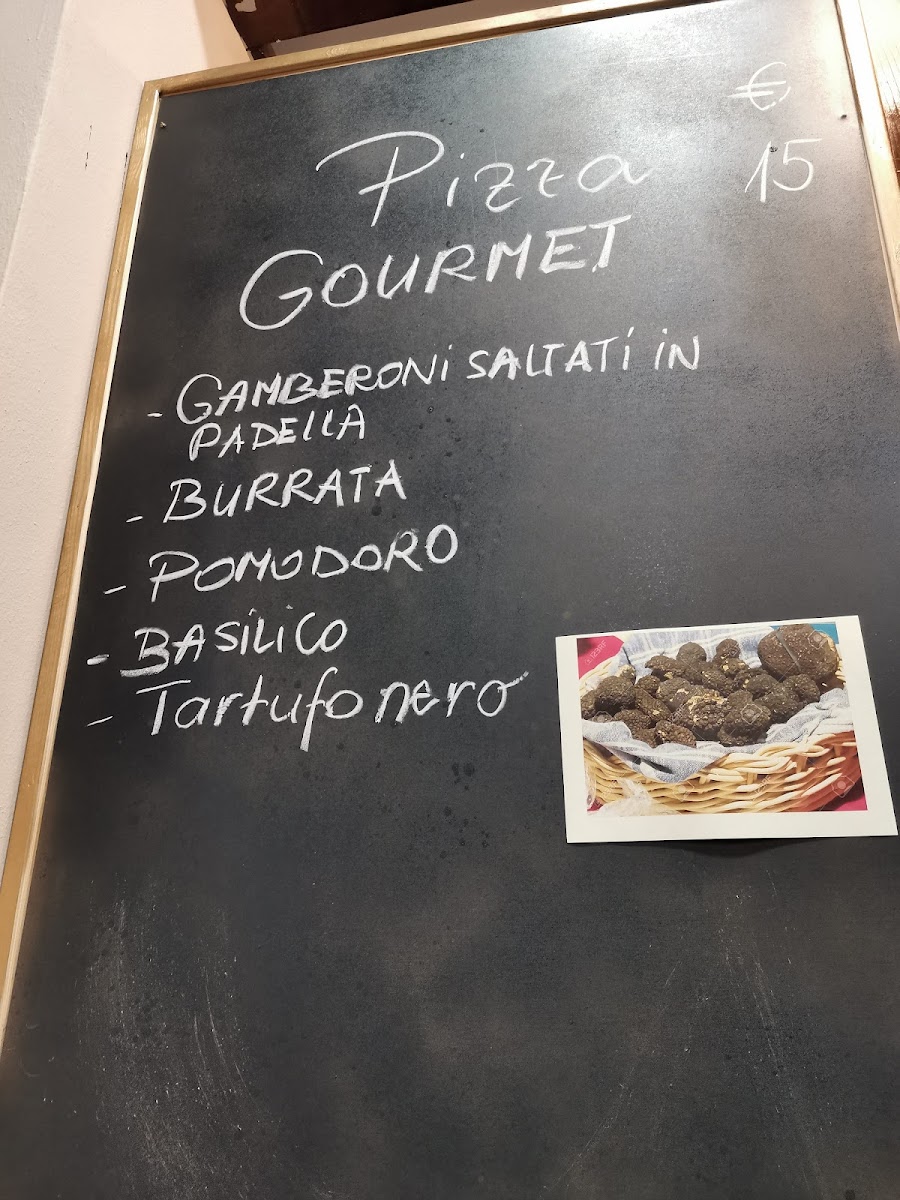 €
15
Pizza
GOURMET
- GAMBERONI SALTATI IN
PADELLA
- BURRATA
- POMODORO
- BASILICO
- Tartufo nero